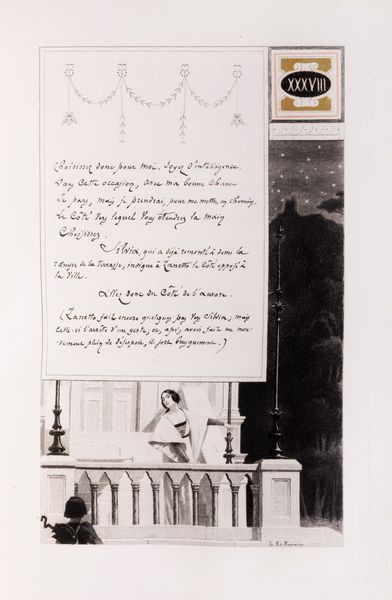 XXXVIII
Choisissez donc pour moi. Soyez d'intelligence,
Dans cette occasion, avec ma bonne chance
Je pars, mais je prendrai, pour me mettre en chemin,
Le côté vers lequel vous étendrez la main
Choisissez.
Silvia, qui a déjà remonté à demi la
rampe de la terrasse, indique à Zanetto le côté opposé à
la ville.
Allez donc du côté de l'aurore.
(Zanetto fait encore quelques pas vers Silvia; mais
celle-ci l'arrête d'un geste, et, après avoir fait un mou-
vement plein de désespoir, il sort brusquement.)
L. Ed. Fournier